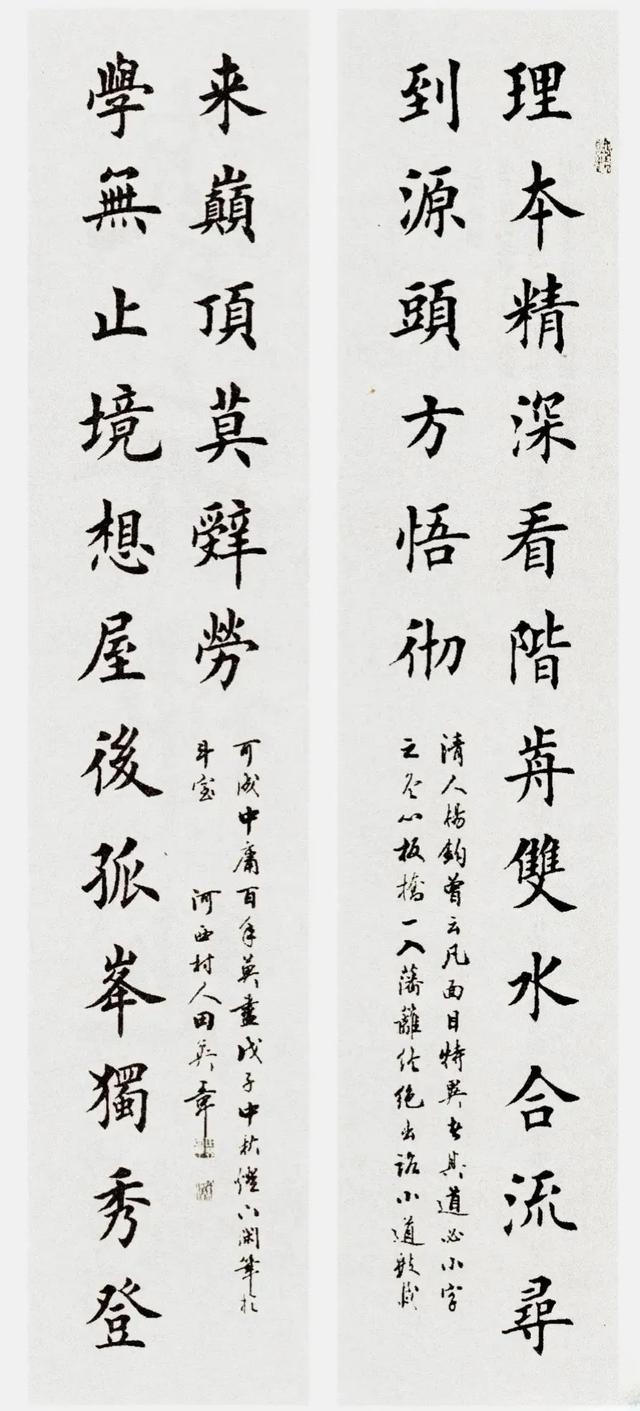 理本精深看階歬雙水合流尋
到源頭方悟彻
清人楊鈞曾云凡面目特異者其道必小字
之冬心板橋一入藩籬絕出路小道數歲
學無止境想屋後孤峯獨秀登
来巔頂莫辭勞
可成中庸百年莫盡戊子中秋燈下閑筆於
斗室 河西村人田英章